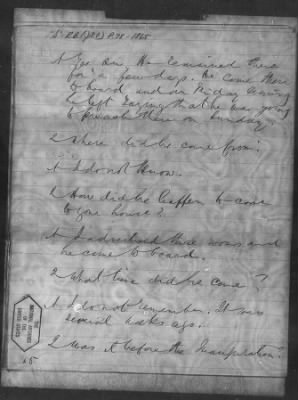 A Yes sir. He remained there
for a few days. He came there
to board and on Friday evening
he left saying that he was going
to preach there on Sunday.
Q Where did he come from?
A I do not know.
Q How did he happen to come
to your house?
A I advertised three rooms and
he came to board.
Q What time did he come?
A I do not remember. It was
several weeks ago.
Q Was it before the Inauguration?
THE
NATIONAL ARCHIVES
OF THE
UNITED STATES